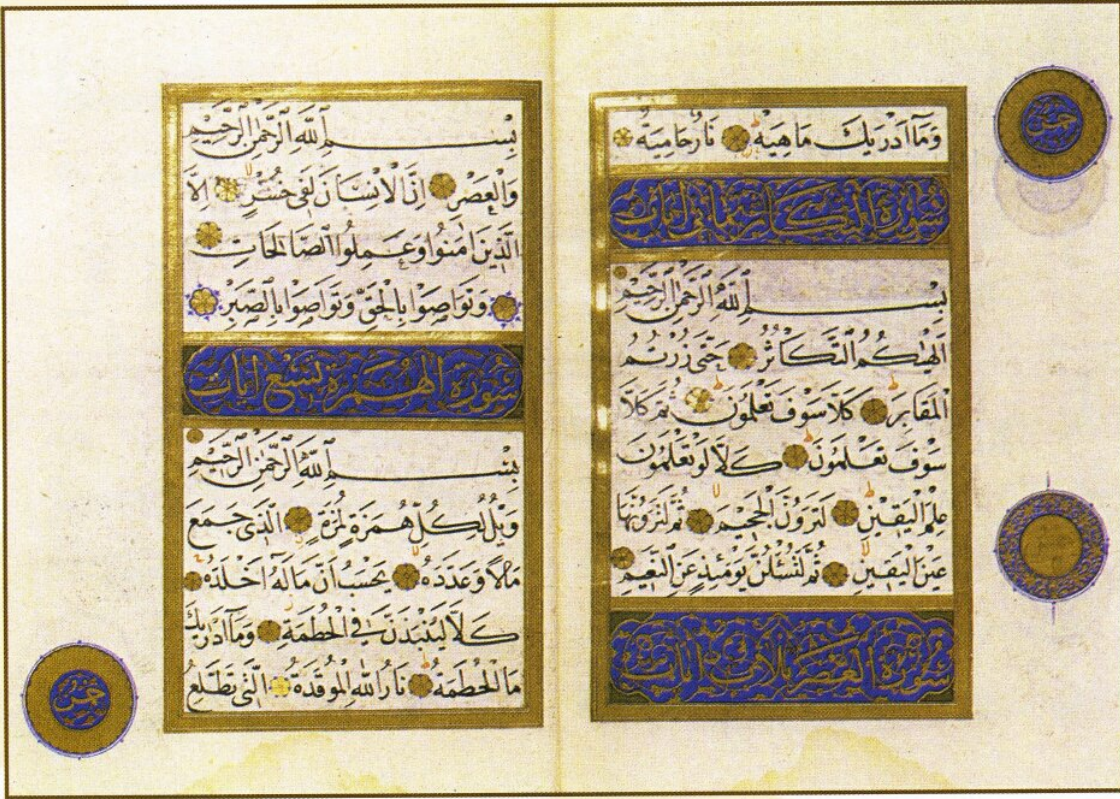 وَمَا اَدْرٰيكَ مَا هِيَهْ نَارٌ حَامِيَةٌ
سورة التكاثر ثماني ايات
بِسْمِ اللّٰهِ الرَّحْمٰنِ الرَّحِيمِ
اَلْهٰيكُمُ التَّكَاثُرُ حَتّٰى زُرْتُمُ
الْمَقَابِرَ كَلَّا سَوْفَ تَعْلَمُونَ ثُمَّ كَلَّا
سَوْفَ تَعْلَمُونَ كَلَّا لَوْ تَعْلَمُونَ
عِلْمَ الْيَقِينِ لَتَرَوُنَّ الْجَحِيمَ ثُمَّ لَتَرَوُنَّهَا
عَيْنَ الْيَقِينِ ثُمَّ لَتُسْئَلُنَّ يَوْمَئِذٍ عَنِ النَّعِيمِ
سورة العصر ثلاث ايات
خمس
بِسْمِ اللّٰهِ الرَّحْمٰنِ الرَّحِيمِ
وَالْعَصْرِ اِنَّ الْاِنْسَانَ لَفِى خُسْرٍ اِلَّا
الَّذِينَ اٰمَنُوا وَعَمِلُوا الصَّالِحَاتِ
وَتَوَاصَوْا بِالْحَقِّ وَتَوَاصَوْا بِالصَّبْرِ
سورة الهمزة تسع ايات
بِسْمِ اللّٰهِ الرَّحْمٰنِ الرَّحِيمِ
وَيْلٌ لِكُلِّ هُمَزَةٍ لُمَزَةٍ الَّذِى جَمَعَ
مَالًا وَعَدَّدَهُ يَحْسَبُ اَنَّ مَالَهُ اَخْلَدَهُ
كَلَّا لَيُنْبَذَنَّ فِى الْحُطَمَةِ وَمَا اَدْرٰيكَ
مَا الْحُطَمَةُ نَارُ اللّٰهِ الْمُوقَدَةُ الَّتِى تَطَّلِعُ
خمس